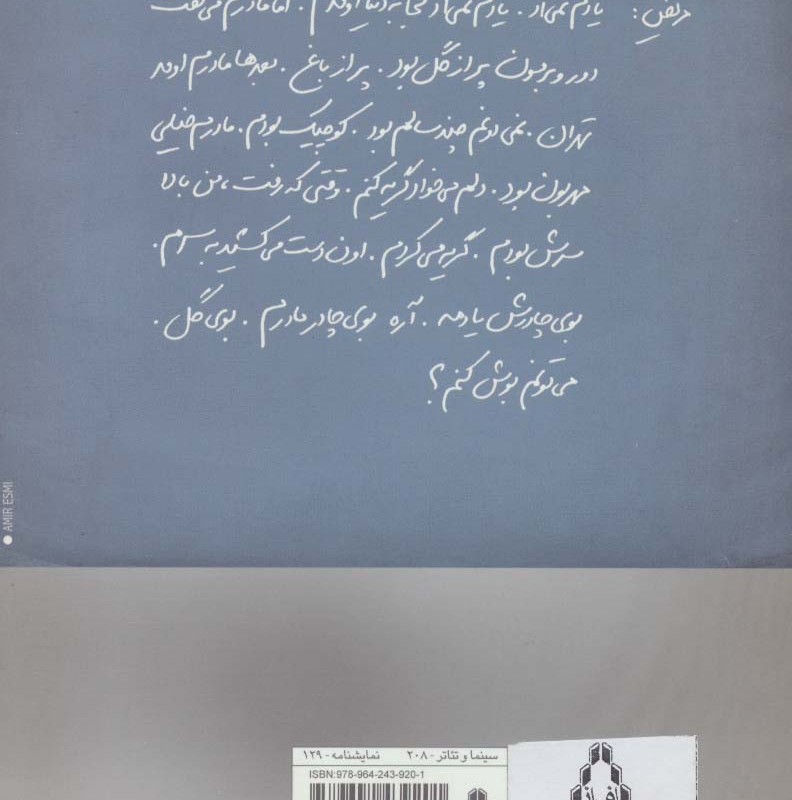 مریض: یادم نمی‌آد. یادم نمی‌آد کجا به دنیا اومدم. اما مادرم می‌گفت
دور و برمون پر از گل بود. پر از باغ. بعدها مادرم اومد
تهران. نمی‌دونم چند سالم بود. کوچیک بودم. مادرم خیلی
مهربون بود. دلم می‌خواد گریه کنم. وقتی که رفت، من بالا
سرش بودم. گریه می‌کردم. اون دست می‌کشید به سرم.
بوی چادرش یادمه. آره بوی چادر مادرم. بوی گل.
می‌تونم بوش کنم؟
AMIR ESMI
سینما و تئاتر - ۲۰۸ نمایشنامه - ۱۲۹
ISBN:978-964-243-920-1
افراز